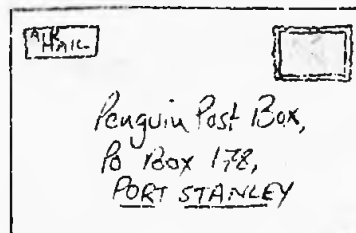 AIR
MAIL
Penguin Post Box,
Po Box 178,
PORT STANLEY